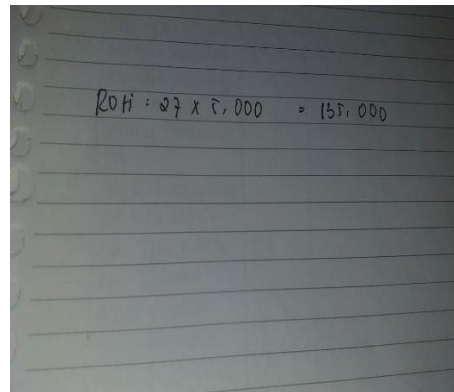 Roti : 27 x 5.000 = 135.000